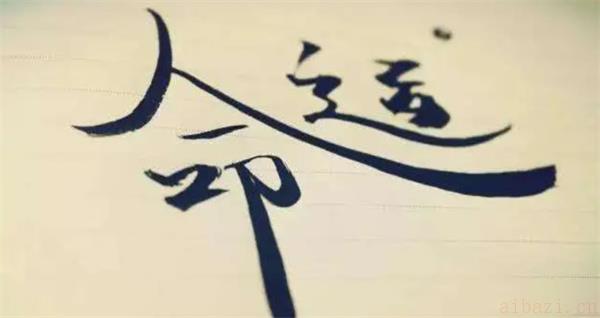 命运
aibazi.cn